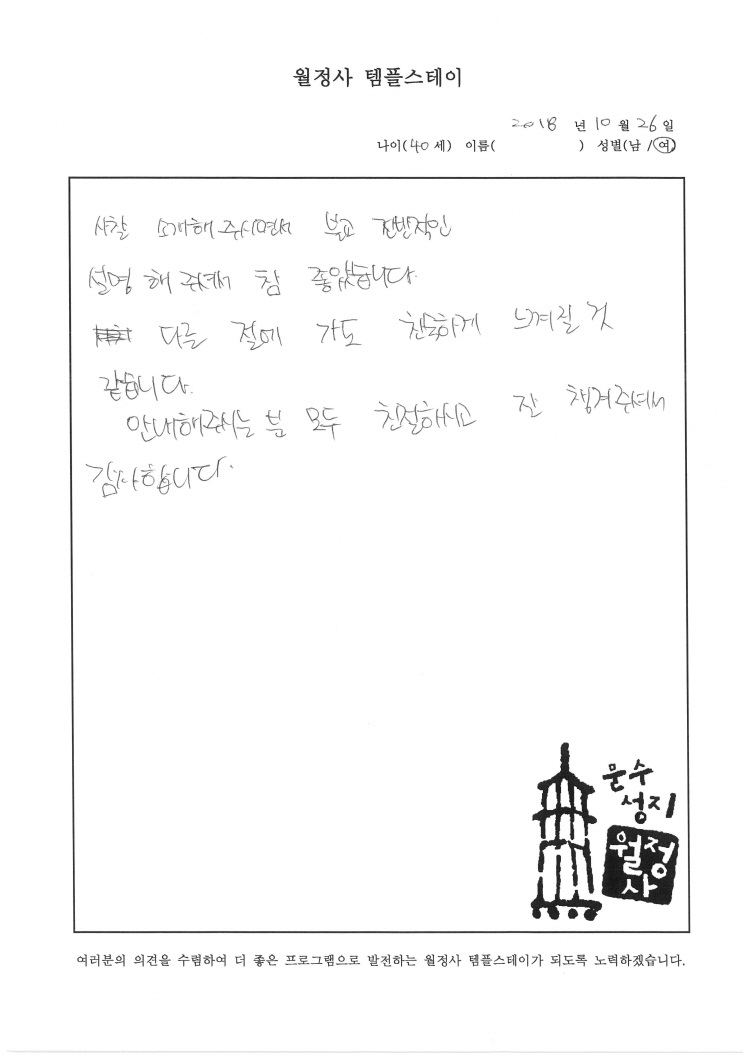 월정사 템플스테이
2018 년 10 월 26 일
나이(40 세) 이름( ) 성별(남 /여)
사찰 소개해 주시면서 불교 전반적인
설명 해 주셔서 참 좋았습니다.
다른 절에 가도 친숙하게 느껴질 것
같습니다.
안내해주시는 분 모두 친절하시고 잘 챙겨주셔서
감사합니다.
문수
성지
월정
사
여러분의 의견을 수렴하여 더 좋은 프로그램으로 발전하는 월정사 템플스테이가 되도록 노력하겠습니다.